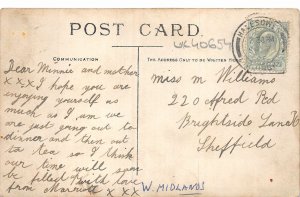 POST CARD.
UK40654
COMMUNICATION
THE ADDRESS ONLY TO BE WRITTEN HERE
HALESOWEN
Dear Minnie and mother
x x x I hope you are
enjoying yourself as
much as I am we
are just going out to
dinner and then out
to tea so I think
our time will soon
be filled with love
from Marriott x xx
Miss M Williams
220 Alfred Rd
Brightside Lane
Sheffield
W. MIDLANDS